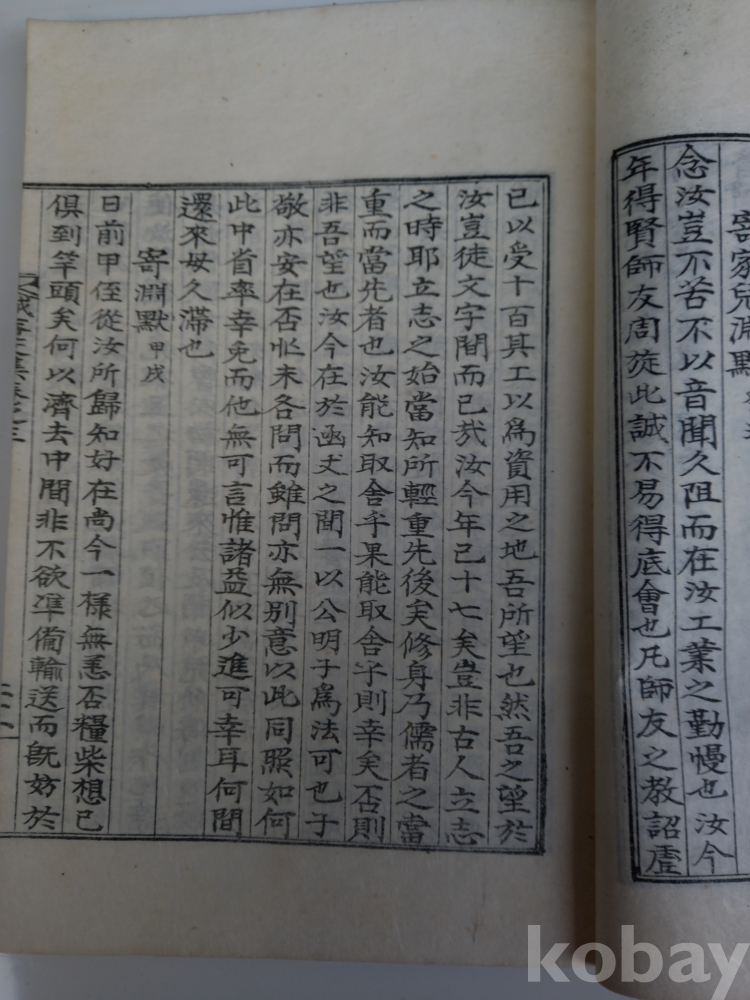 寄家兒淵默
念汝豈不苦不以音聞久阻而在汝工業之勤慢也汝今
年得賢師友周旋此誠不易得底會也凡師友之敎詔虛
已以受十百其工以爲資用之地吾所望也然吾之望於
汝豈徒文字間而已哉汝今年已十七矣豈非古人立志
之時耶立志之始當知所輕重先後矣修身乃儒者之當
重而當先者也汝能知取舍乎果能取舍乎則幸矣否則
非吾望也汝今在於函丈之間一以公明子爲法可也子
敬亦安在否忙未各問而雖問亦無別意以此同照如何
此中省率幸免而他無可言惟諸益似少進可幸耳何間
還來毋久滯也
寄淵默 甲戌
日前甲侄從汝所歸知好在尙今一樣無恙否糧柴想已
俱到竿頭矣何以濟去中間非不欲準備輸送而旣妨於
kobay